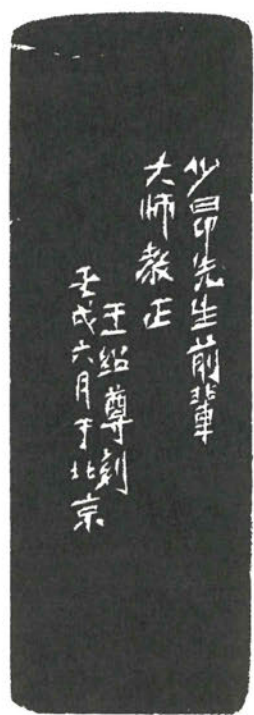 少昂先生前辈
大师教正
王绍尊刻
壬戌六月于北京